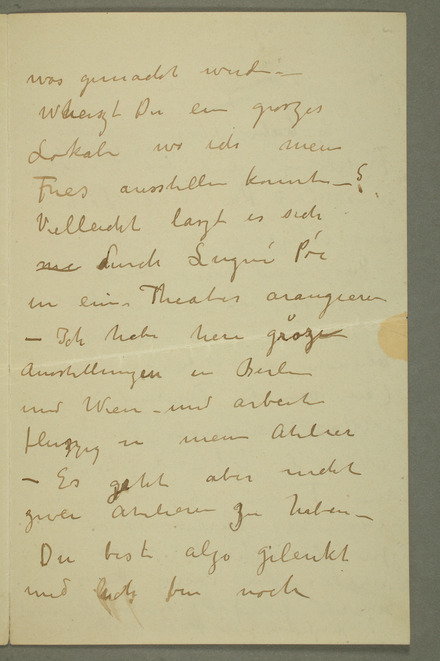 was gemacht wurde –
Wheizt Du ein groszes
Lokale wo ich mein
Fries ausstellen konnte – ?
Vielleicht laszt es sich
durch Lugné Pöe
in eines Theater arangieren
– Ich habe hier grösze
Ausstellungen in Berlin
und Wien – und arbeite
fleiszig in mein Atelier
– Es geht aber nicht
zwei Atelieren zu haben –
Du bist also gelenkt
und ich bin noch